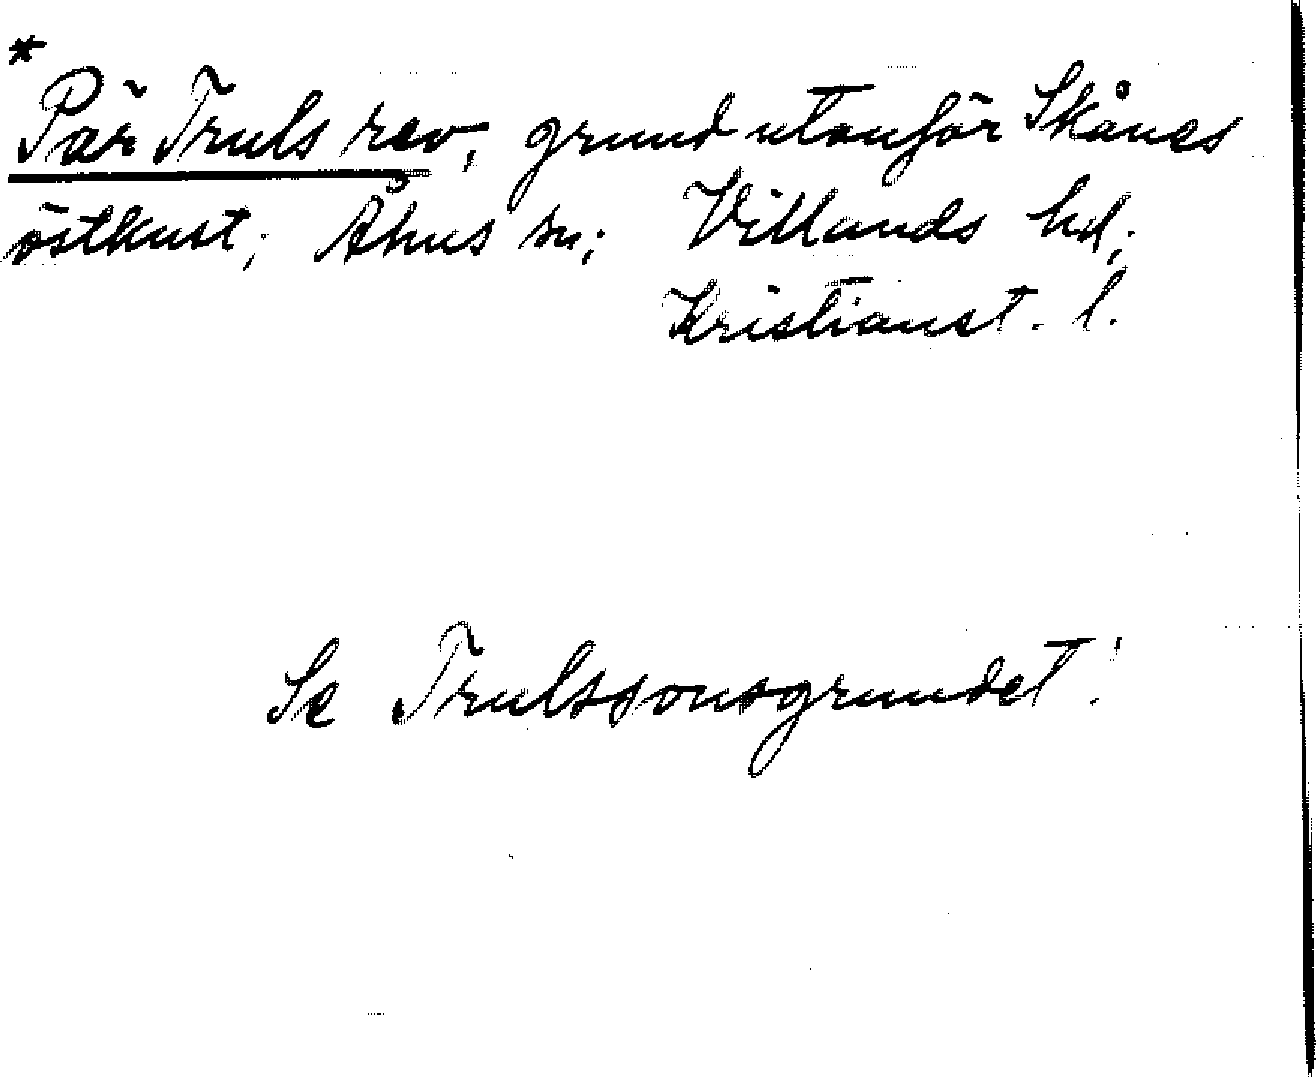 *
Pär Truls rev, grund utanför Skånes
östkust; Åhus sn; Villands hd;
Kristianst. l.
Se Trulssonsgrundet!